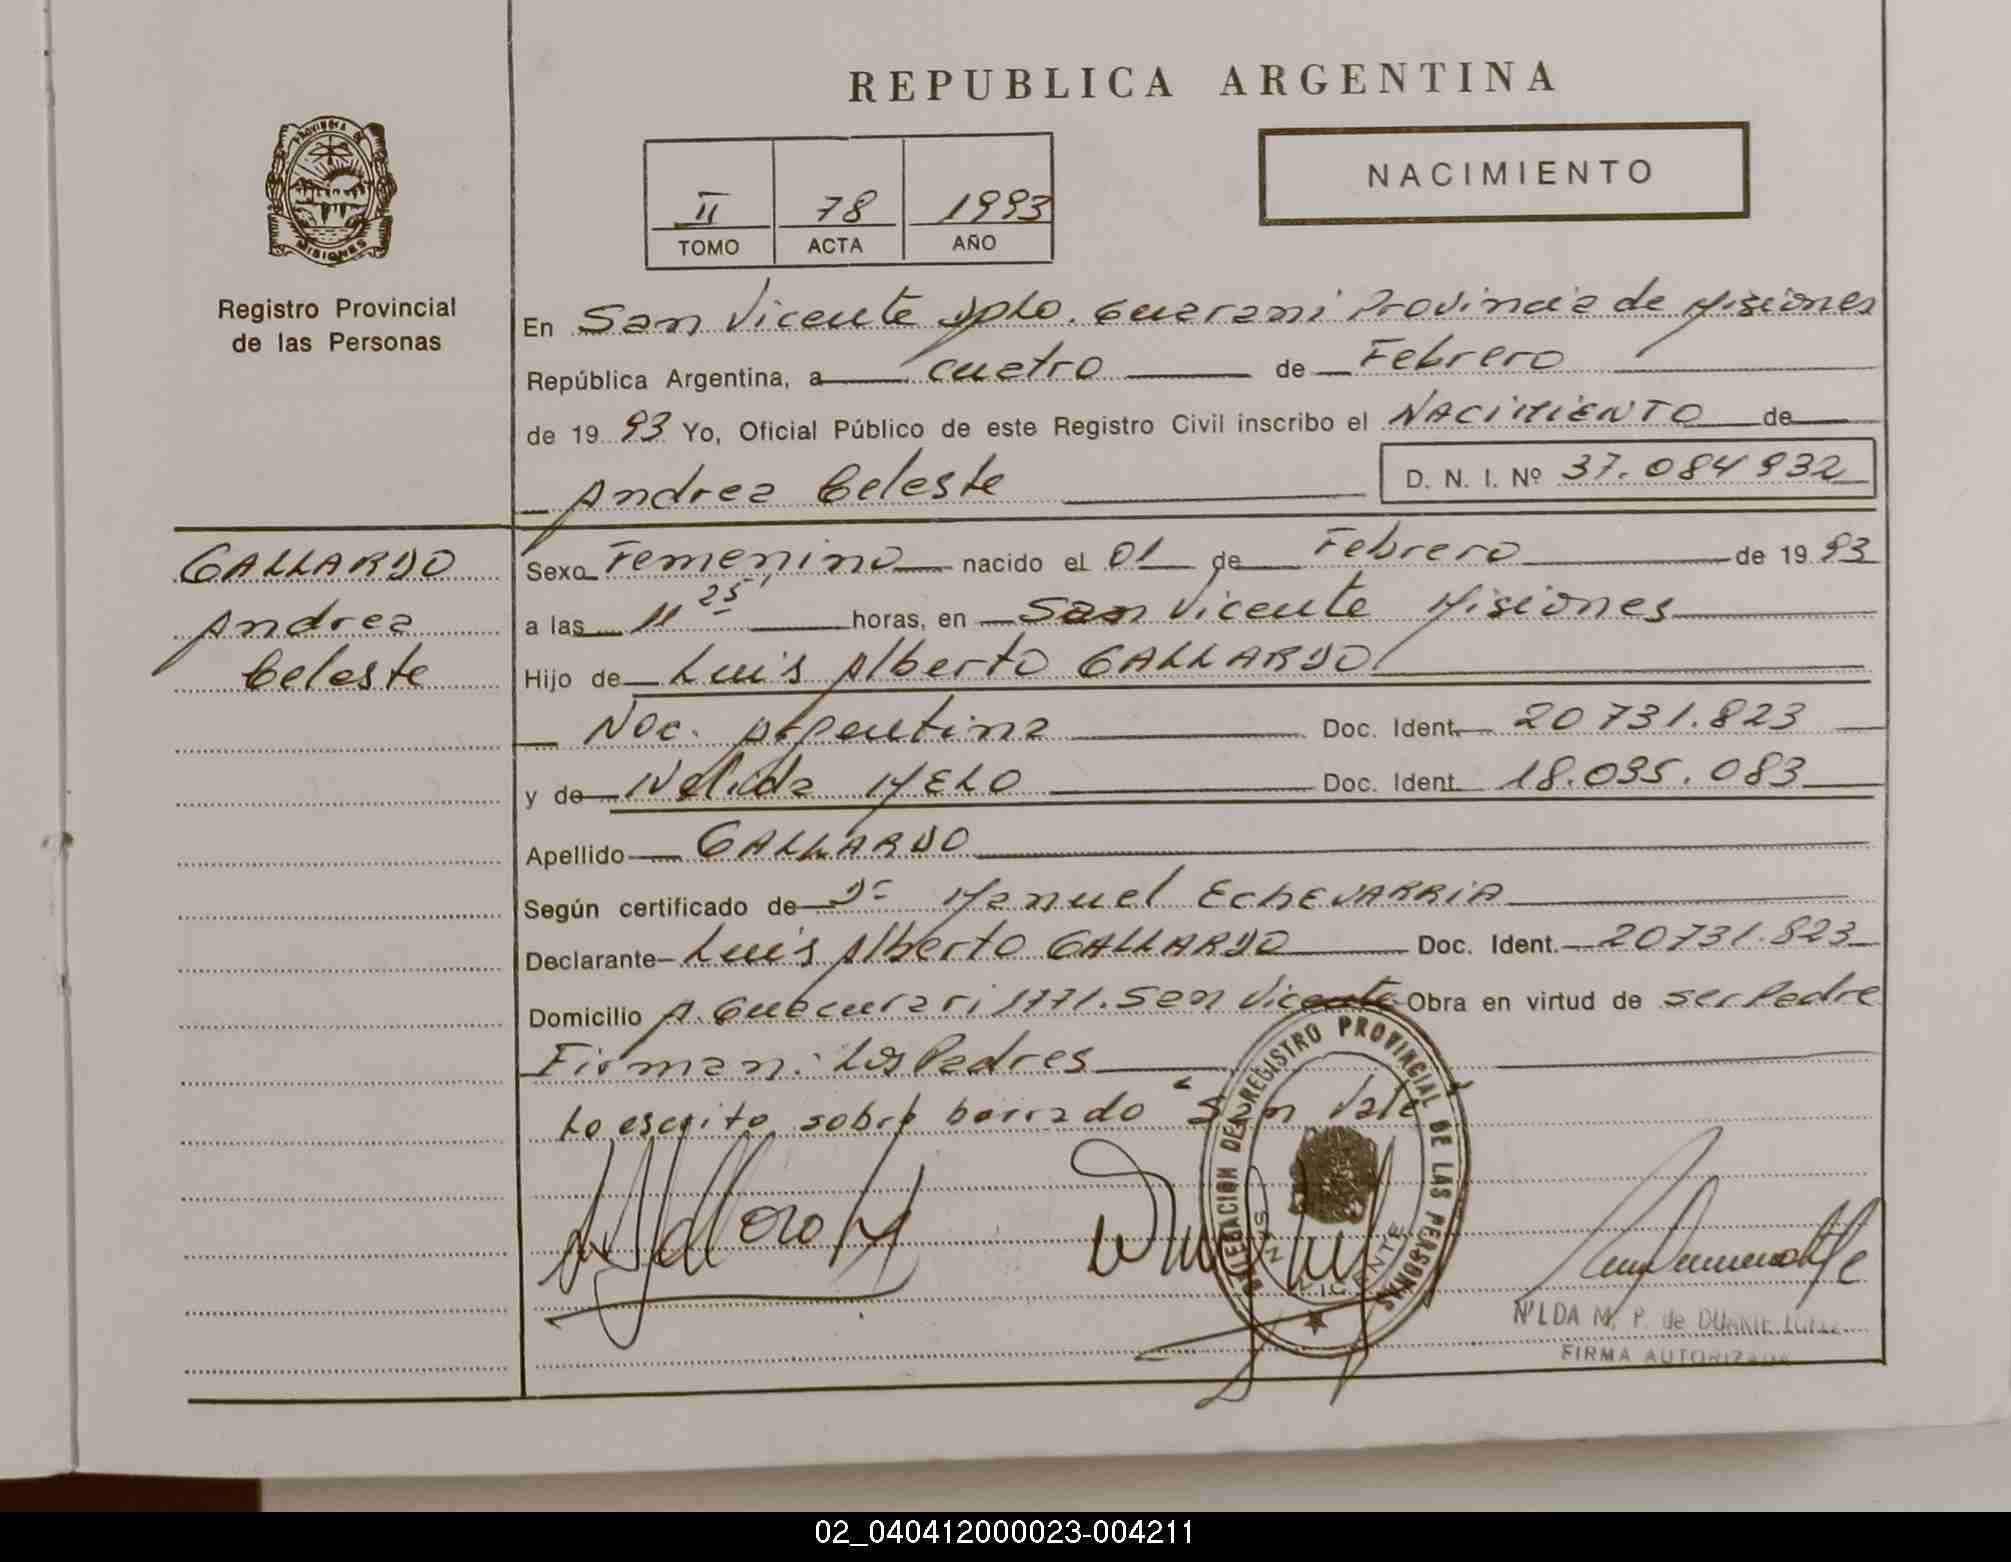 REPUBLICA ARGENTINA
PROVINCIA DE
MISIONES
Registro Provincial
de las Personas
NACIMIENTO
II 78 1993
TOMO ACTA AÑO
En San Vicente Dpto. Guarani Provincia de Misiones
República Argentina, a cuatro de Febrero
de 1993 Yo, Oficial Público de este Registro Civil inscribo el NACIMIENTO de
Andrea Celeste D. N. I. Nº 37.084932
GALLARDO
Andrea
Celeste
Sexo Femenino nacido el 01 de Febrero de 1993
a las 11 25' horas, en San Vicente Misiones
Hijo de Luis Alberto GALLARDO
Nac. Argentina Doc. Ident. 20731.823
y de Nelida MELO Doc. Ident. 18.095.083
Apellido GALLARDO
Según certificado de Dr Manuel EchEVARRIA
Declarante Luis Alberto GALLARDO Doc. Ident. 20731.823
Domicilio A. Guacurari 1771. San Vicente Obra en virtud de ser Padre
Firman: Los Padres
Lo escrito sobre borrado "San Vale
DELEGACION DEL REGISTRO PROVINCIAL DE LAS PERSONAS
SAN VICENTE
NILDA M. P. de DUARTE
FIRMA AUTORIZADA
02_040412000023-004211